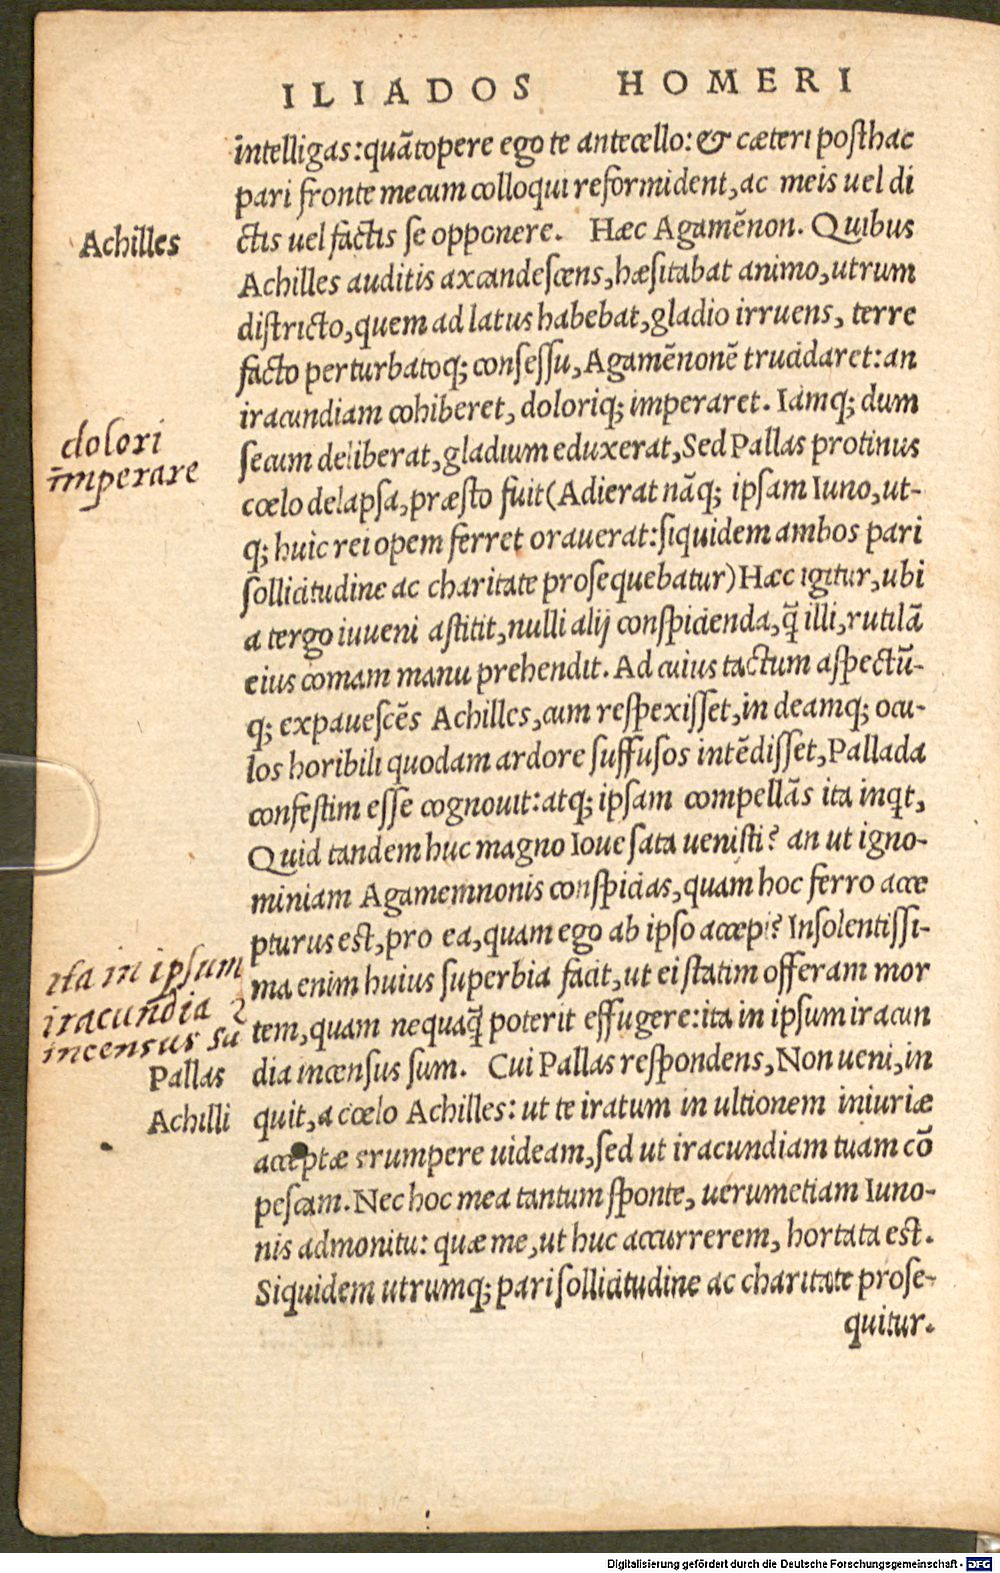 ILIADOS HOMERI
intelligas: quātopere ego te antecello: & cæteri posthac
pari fronte mecum colloqui reformident, ac meis uel di
ctis uel factis se opponere. Hæc Agamēnon. Quibus
Achilles
Achilles auditis axcandescens, hæsitabat animo, utrum
districto, quem ad latus habebat, gladio irruens, terre
facto perturbatoq; consessu, Agamēnonē trucidaret: an
iracundiam cohiberet, doloriq; imperaret. Iamq; dum
dolori
imperare
secum deliberat, gladium eduxerat, Sed Pallas protinus
cœlo delapsa, præsto fuit (Adierat nāq; ipsam Iuno, ut-
q; huic rei opem ferret orauerat: siquidem ambos pari
sollicitudine ac charitate prosequebatur) Hæc igitur, ubi
a tergo iuueni astitit, nulli alij conspicienda, q̄ illi, rutilā
eius comam manu prehendit. Ad cuius tactum aspectū-
q; expauescēs Achilles, cum respexisset, in deamq; ocu-
los horibili quodam ardore suffusos intēdisset, Pallada
confestim esse cognouit: atq; ipsam compellās ita inqt,
Quid tandem huc magno Ioue sata uenisti? an ut igno-
miniam Agamemnonis conspicias, quam hoc ferro acce
pturus est, pro ea, quam ego ab ipso accepi? Insolentissi-
ita in ipsum
iracundia
incensus su
ma enim huius superbia facit, ut ei statim offeram mor
tem, quam nequaq̄ poterit effugere: ita in ipsum iracun
Pallas
Achilli
dia incensus sum. Cui Pallas respondens, Non ueni, in
quit, a cœlo Achilles: ut te iratum in ultionem iniuriæ
acceptæ erumpere uideam, sed ut iracundiam tuam cō
pescam. Nec hoc mea tantum sponte, uerumetiam Iuno-
nis admonitu: quæ me, ut huc accurrerem, hortata est.
Siquidem utrumq; pari sollicitudine ac charitate prose-
quitur.
Digitalisierung gefördert durch die Deutsche Forschungsgemeinschaft - DFG